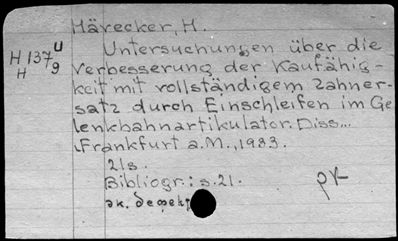 Härecker, H.
H 137 u
H 9
Untersuchungen über die
Verbesserung der Kaufähig-
keit mit vollständigem Zahner-
satz durch Einschleifen im Ge
lenkbahnartikulator. Diss...
Frankfurt a.M., 1933.
21s.
Bibliogr.: s.21.
эк. дефект